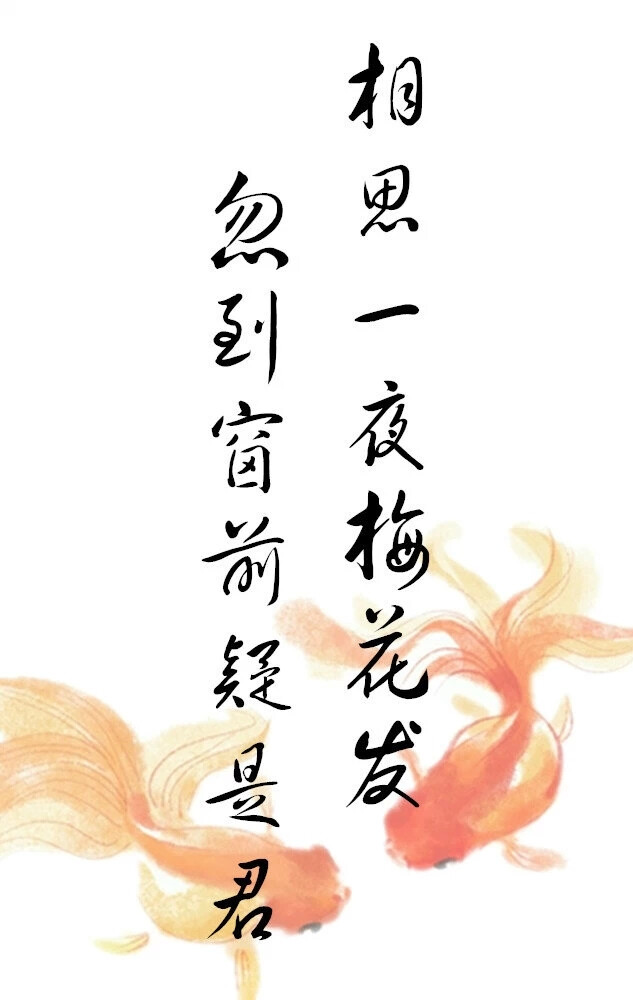 相思一夜梅花发
忽到窗前疑是君